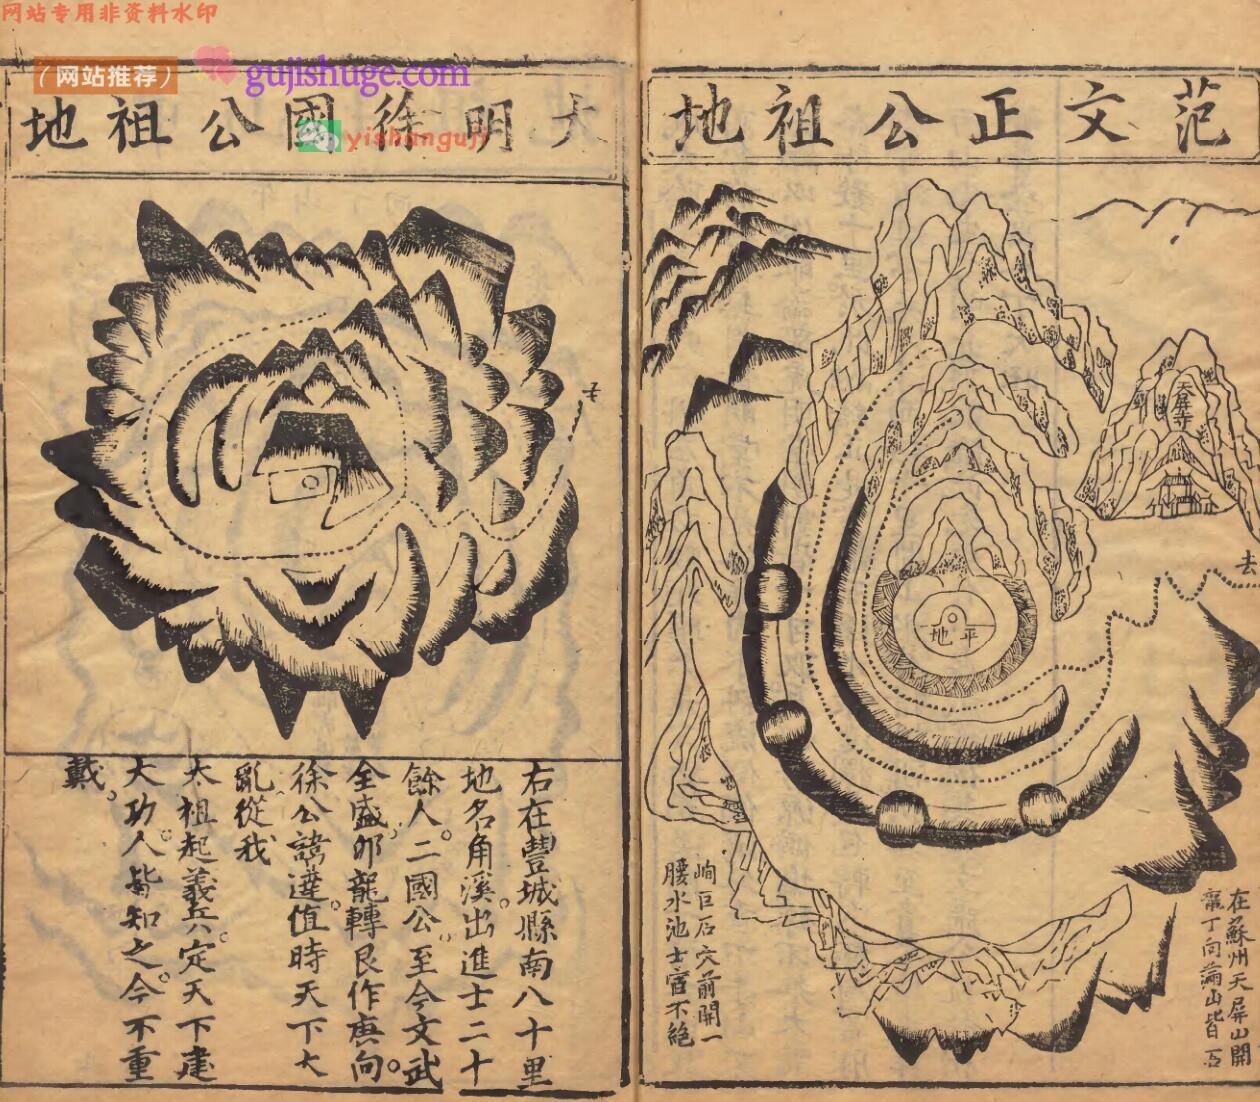 网站专用非资料水印
（网站推荐）
gujishuge.com
yishanguji
范文正公祖地
天屏寺
去
平地
在蘇州天屏山開
龍丁向滿山皆石
峋巨石穴前開一
腰水池士宦不絶
大明徐國公祖地
去
右在豐城縣南八十里
地名角溪。出進士二十
餘人。二國公。至今文武
全盛。卯龍轉艮作庚向。
徐公諱達。值時天下大
亂從我
太祖起義兵。定天下建
大功。人皆知之。今不重
戴。